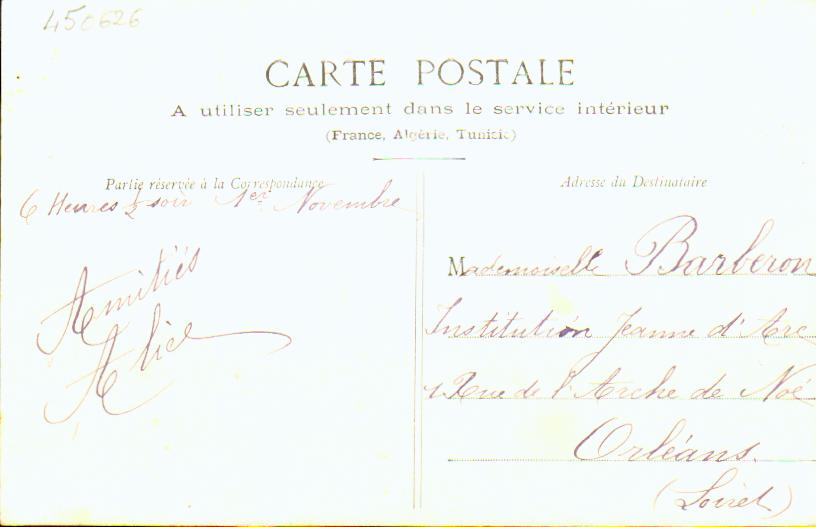 450626
CARTE POSTALE
A utiliser seulement dans le service intérieur
(France, Algérie, Tunisie)
Partie réservée à la Correspondance
6 Heures ½ soir 1er Novembre
Amitiés
Alice
Adresse du Destinataire
Mademoiselle Barberon
Institution Jeanne d'Arc
1 Rue de l'Arche de Noé
Orléans.
(Loiret)